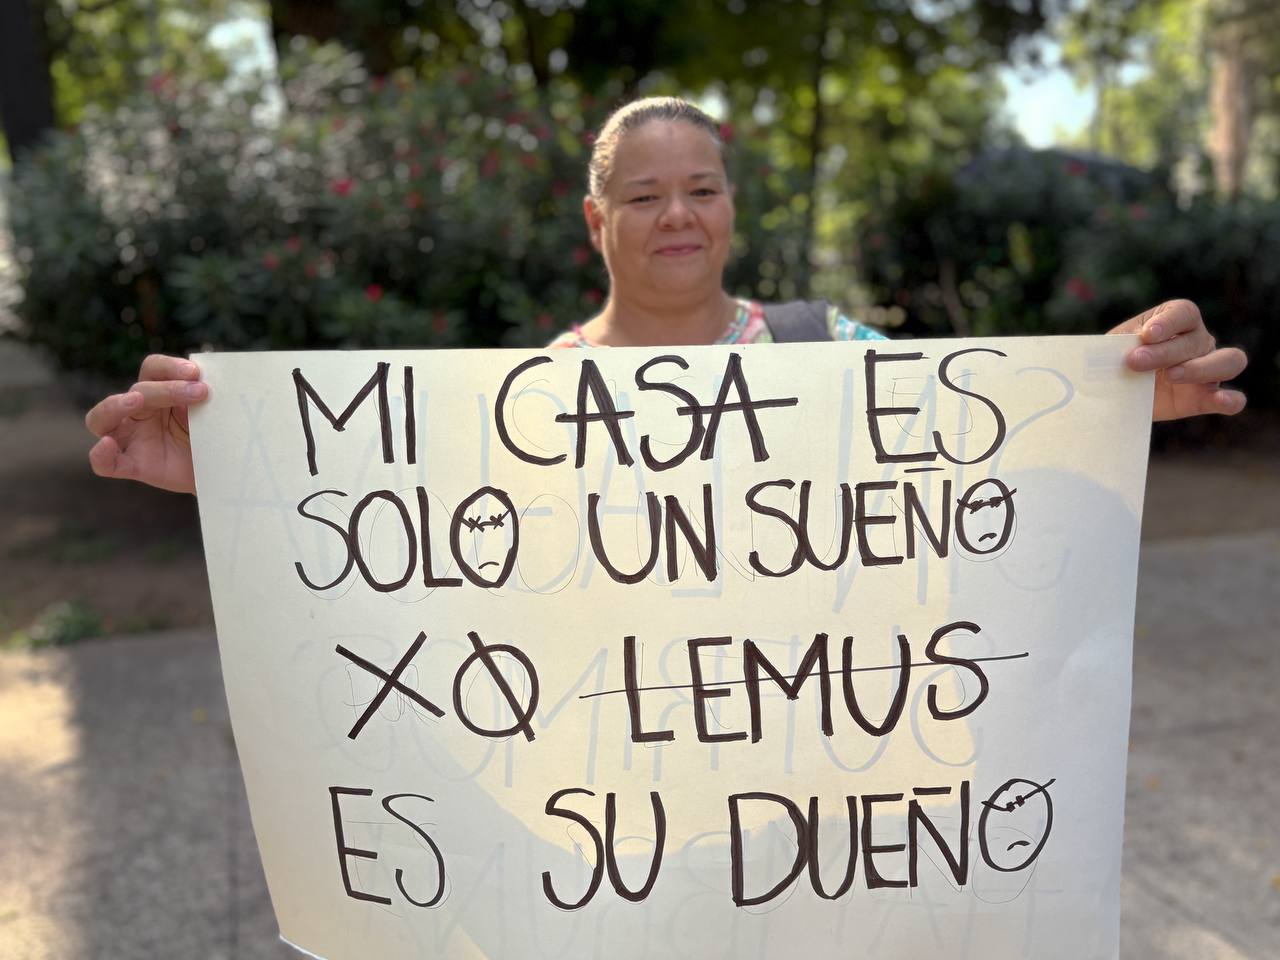 MI CASA ES
SOLO UN SUEÑO
XO LEMUS
ES SU DUEÑO